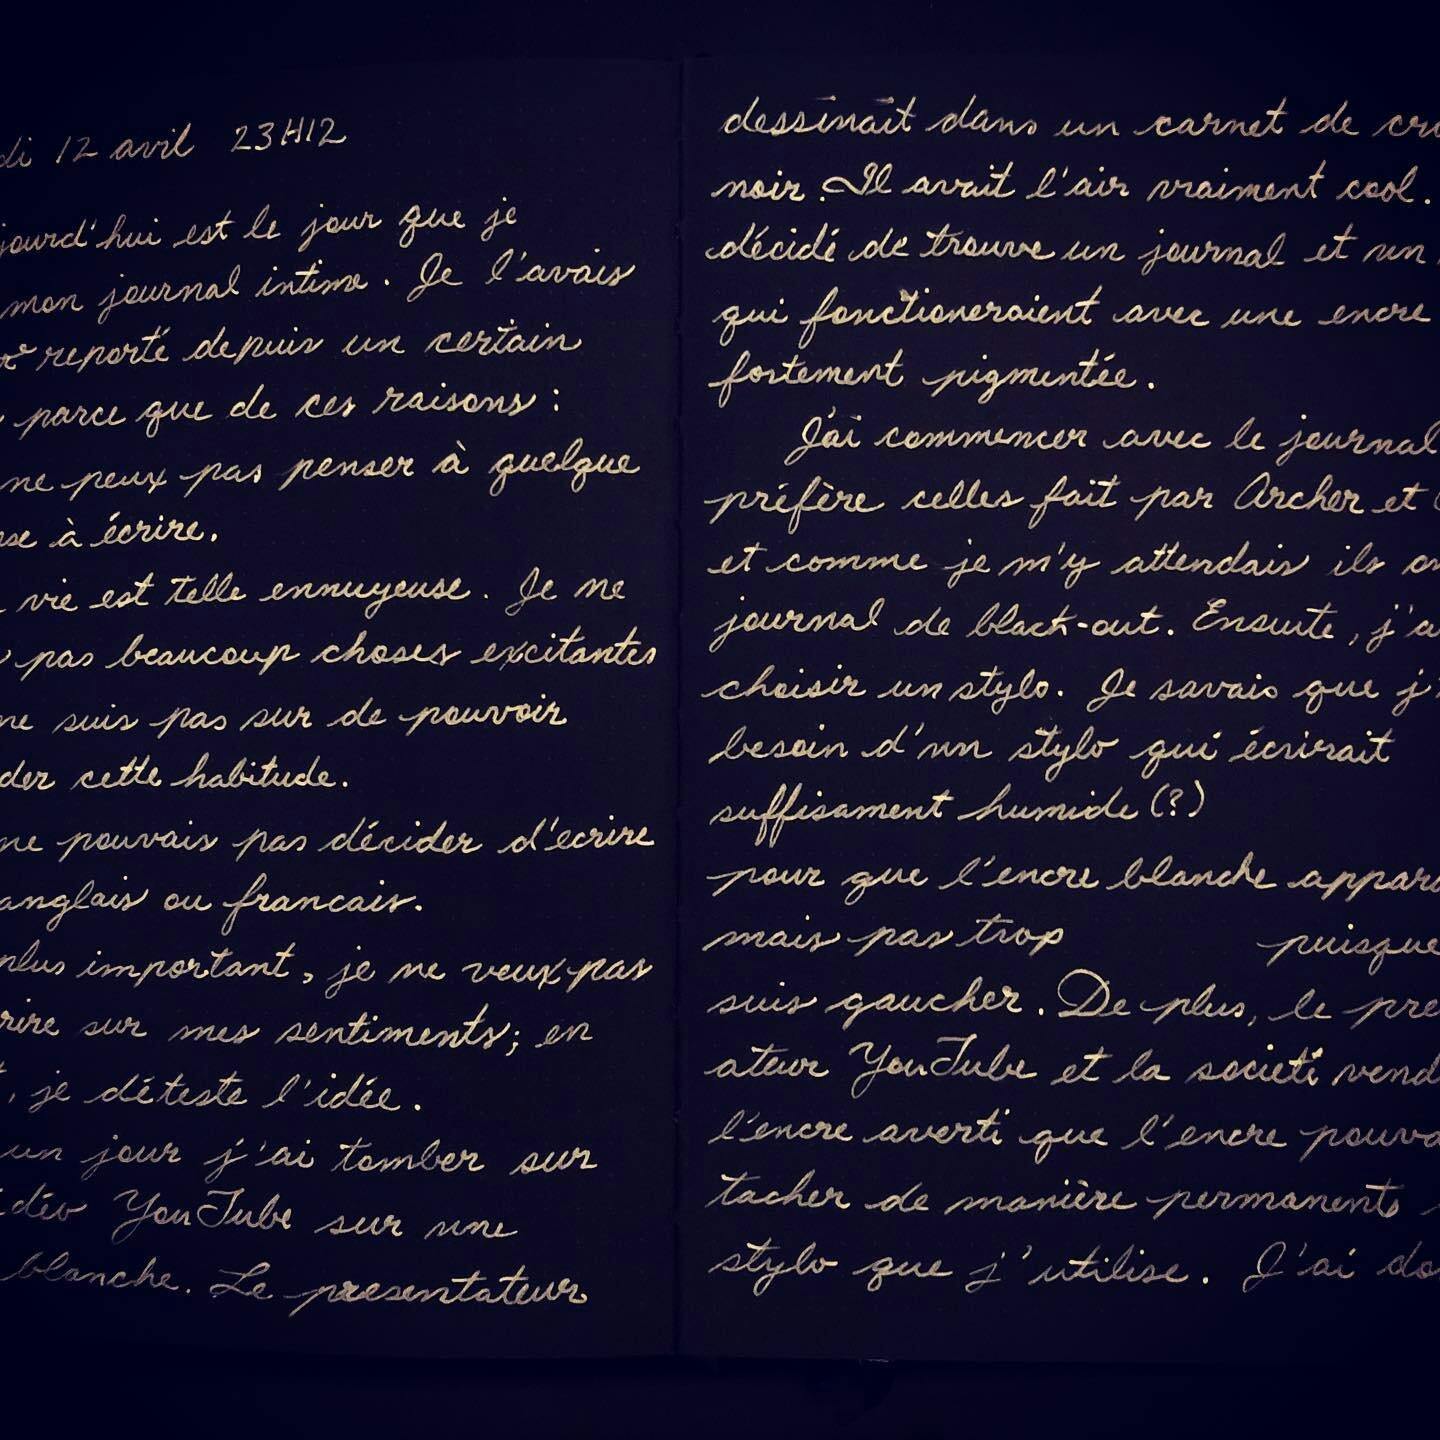 di 12 avril 23H12
jourd'hui est le jour que je
mon journal intime. Je l'avais
reporté depuis un certain
parce que de ces raisons :
ne peux pas penser à quelque
se à écrire.
vie est telle ennuyeuse. Je ne
pas beaucoup choses excitantes
ne suis pas sur de pouvoir
der cette habitude.
ne pouvais pas décider d'ecrire
anglais ou francais.
plus important, je ne veux pas
rire sur mes sentiments; en
, je déteste l'idée.
un jour j'ai tomber sur
idéo YouTube sur une
blanche. Le presentateur
dessinait dans un carnet de cro
noir. Il avait l'air vraiment cool.
décidé de trouve un journal et un
qui fonctioneraient avec une encre
fortement pigmentée.
J'ai commencer avec le journal
préfère celles fait par Archer et
et comme je m'y attendais ils on
journal de black-out. Ensuite, j'a
choisir un stylo. Je savais que j'
besoin d'un stylo qui écrirait
suffisament humide (?)
pour que l'encre blanche appara
mais pas trop puisque
suis gaucher. De plus, le pre
ateur YouTube et la societé vend
l'encre averti que l'encre pouva
tacher de manière permanente
stylo que j'utilise. J'ai do